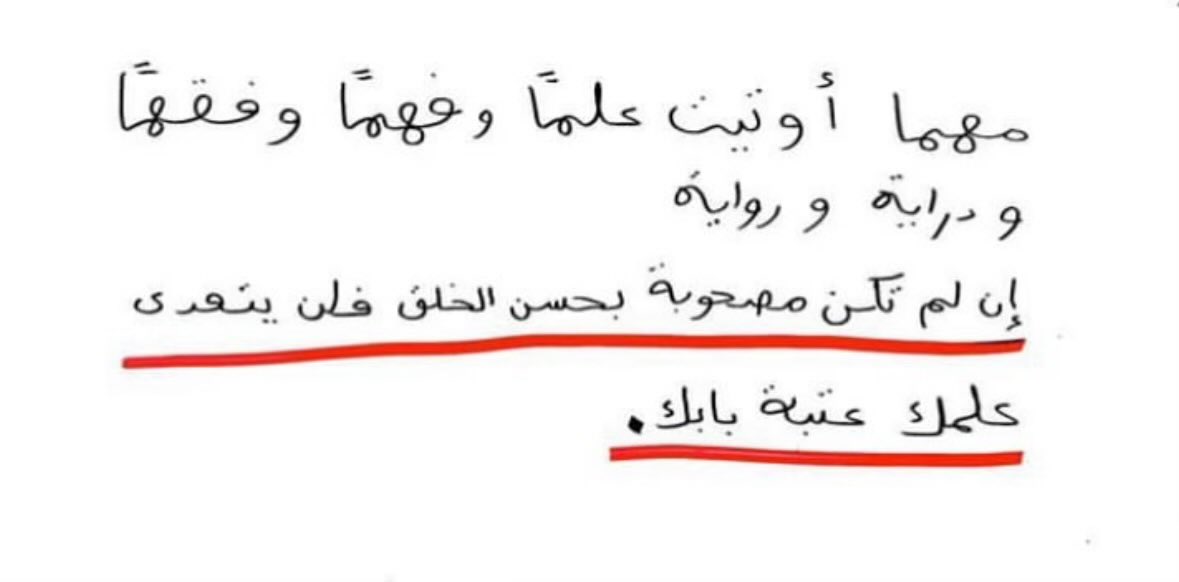 مهما أوتيت علمًا وفهمًا وفقهًا
ودراية ورواية
إن لم تكن مصحوبة بحسن الخلق فلن يتعدى
علمك عتبة بابك.